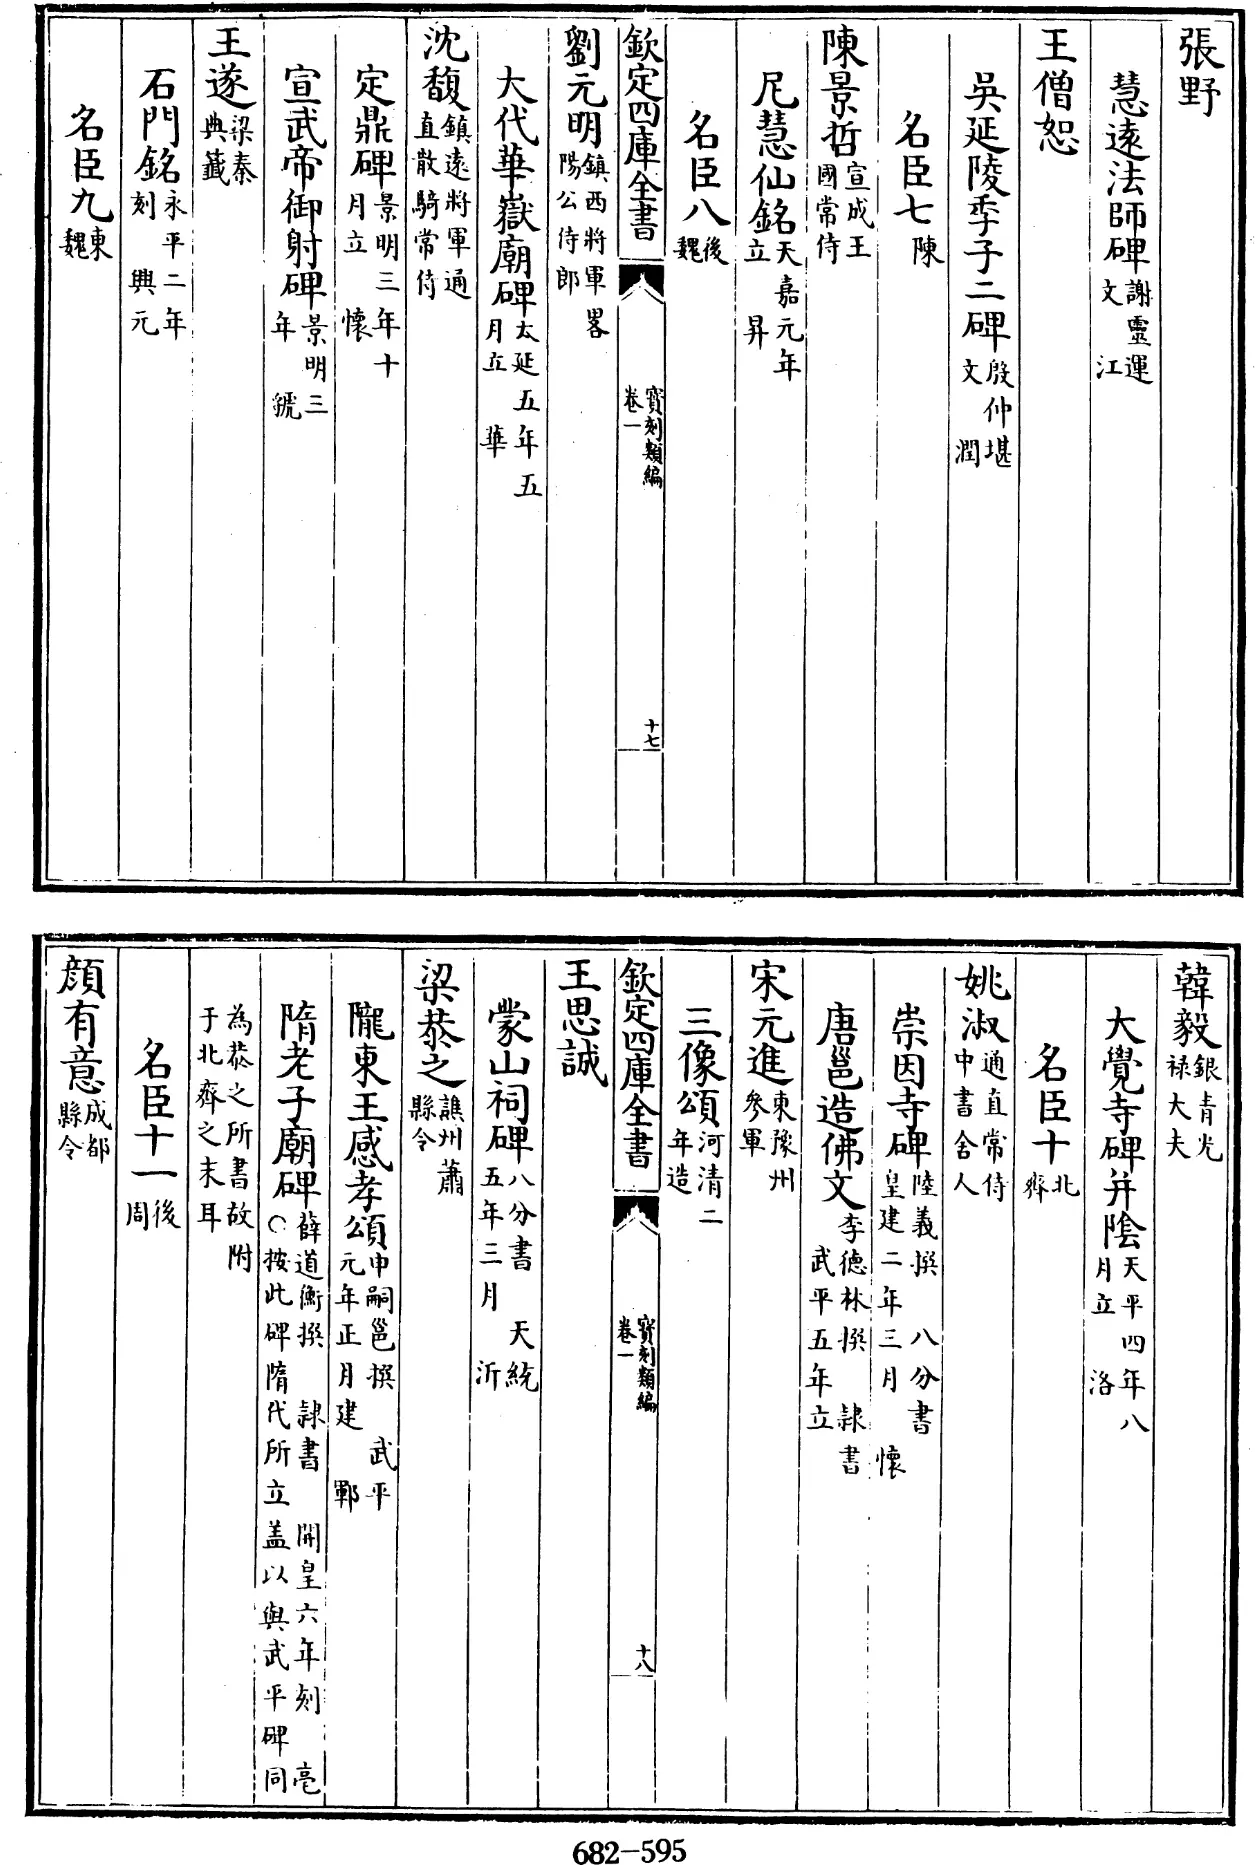 張野
慧遠法師碑謝靈運文　江
王僧恕
吳延陵季子二碑殷仲堪文　潤
名臣七陳
陳景哲宣成王國常侍
尼慧仙銘天嘉元年立　昇
名臣八後魏
欽定四庫全書
寶刻類編卷一
十七
劉元明鎮西將軍畧陽公侍郎
大代華嶽廟碑太延五年五月立　華
沈馥鎮遠將軍通直散騎常侍
定鼎碑景明三年十月立　懷
宣武帝御射碑景明三年　虢
王遂梁秦典籤
石門銘永平二年刻　興元
名臣九東魏
韓毅銀青光禄大夫
大覺寺碑并陰天平四年八月立　洛
名臣十北齊
姚淑通直常侍中書舍人
崇因寺碑陸義撰　八分書皇建二年三月　懷
唐邕造佛文李德林撰　隷書武平五年立
宋元進東豫州參軍
三像頌河清二年造
欽定四庫全書
寶刻類編卷一
十八
王思誠
蒙山祠碑八分書　天統五年三月　沂
梁恭之譙州蕭縣令
隴東王感孝頌申嗣邕撰　武平元年正月建　鄆
隋老子廟碑薛道衡撰　隷書　開皇六年刻　亳○按此碑隋代所立盖以與武平碑同
為恭之所書故附于北齊之末耳
名臣十一後周
顔有意成都縣令
682-595